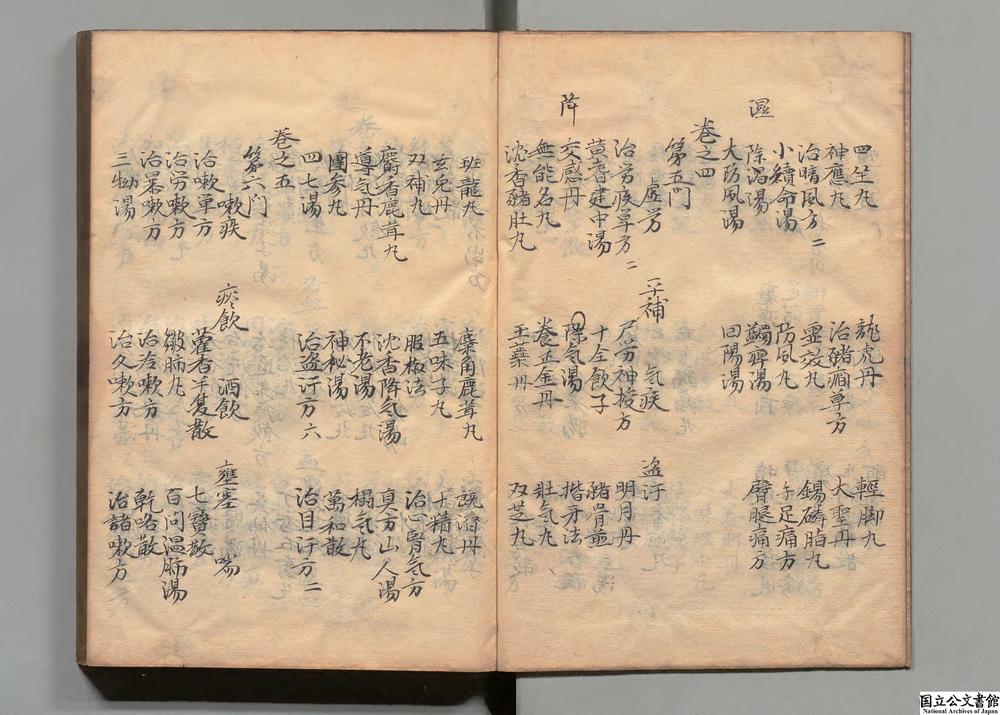 四生丸 龍虎丹 輕脚丸
神應丸 治豬瀾單方 大聖丹
治暗風方二 靈效丸 錫磷脂丸
小續命湯 防風丸 手足痛方
除濕湯 蠲痹湯 臂腿痛方
大防風湯 回陽湯
濕
卷之四
第五門
虚労 平補 氣疾 盗汗
治労疾單方二 尸労神授方 明月丹
黄耆建中湯 十全飲子 豬骨煎
交感丹 降氣湯 揩牙法
無能名丸 養正金丹 壯氣丸
沈香豬肚丸 玉蘂丹 双芝丸
降
班龍丸 麋角鹿茸丸
玄兎丹 五味子丸 十精丸
双補丸 服椒法 治心腎氣方
麝香鹿茸丸 沈香降氣湯 真方山人湯
導氣丹 不老湯 榻氣丸
團参丸 神秘湯 萬和散
四七湯 治盗汗方六 治目汗方二
卷之五
第六門
嗽疾 痰飲 酒飲 壅塞 喘
治嗽單方 藿香半夏散 七寶散
治労嗽方 皺肺丸 百問温肺湯
治暴嗽方 治冷嗽方 乾咯散
三物湯 治久嗽方 治諸嗽方
国立公文書館
National Archives of Japan